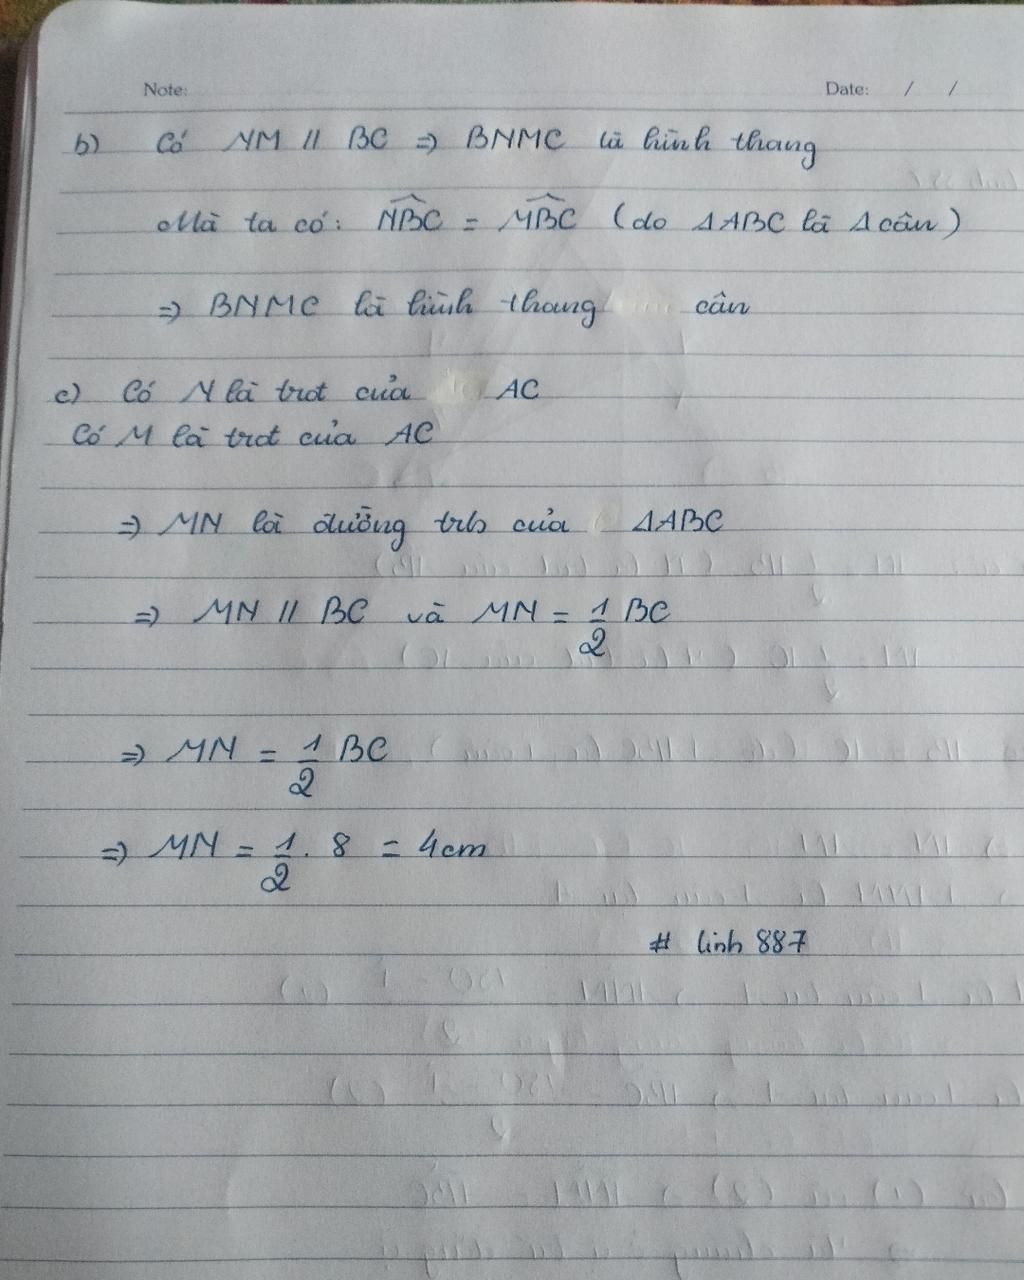 Note:
Date: / /
b) Có NM // BC => BNMC là hình thang
Mà ta có: \widehat{NBC} = \widehat{MBC} (do ΔABC là Δ cân)
=> BNMC là hình thang cân
c) Có N là trđt của AC
Có M là trđt của AC
=> MN là đường trb của ΔABC
=> MN // BC và MN = 1/2 BC
=> MN = 1/2 BC
=> MN = 1/2 . 8 = 4cm
# linh 887